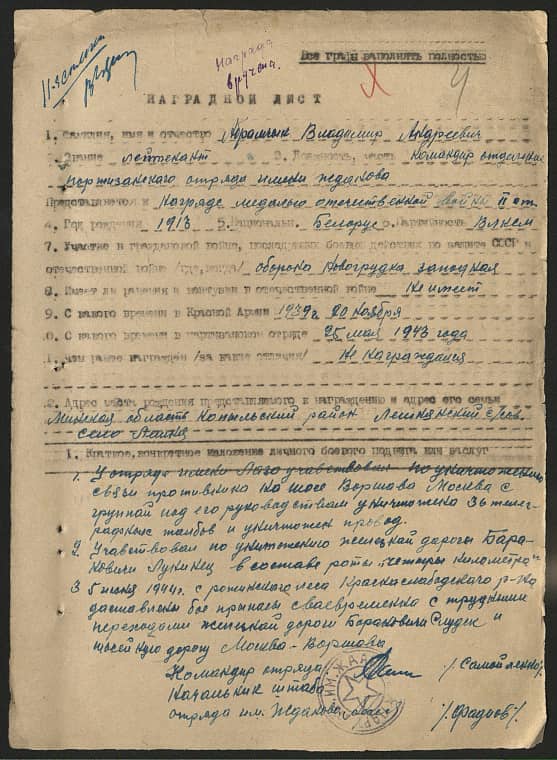 Награда
вручена.
Все графы заполнять полностью
Х
Ч
НАГРАДНОЙ ЛИСТ
1. Фамилия, имя и отчество Абрамчык Владимир Андреевич
2. Звание лейтенант 3. Должность, часть командир отделения
партизанского отряда имени Жданова
Представляется к Награде медалью отечественной войны II ст.
4. Год рождения 1913 5. Национальн. Белорус 6. Партийность Влксм
7. Участие в гражданской войне, последующих боевых действиях по защите СССР и
отечественной войне /где, когда/ оборона Новогрудка западная
8. Имеет ли ранения и контузии в отечественной войне Не имеет
9. С какого времени в Красной Армии 1939г 20 ноября
0. С какого времени в партизанском отряде 25 мая 1943 года
1. Чем ранее награжден /за какие отличия/ Не награждался
2. Адрес места рождения представляемого к награждению и адрес его семьи
Минская область Копыльский район Лешнянский с/сов
село
1. Краткое, конкретное изложение личного боевого подвига или заслуг
1. У отряде имени Лазо учавствовал по уничтожению
связи противника на шосе Воршова Москва с
групой под его руководством уничтожена 36 телег-
рафных столбов и уничтожен провод.
2. Учавствовал по унитожению желецкой дороги Бара-
новичи Лунинец в составе роты "четыри километра"
3 5 июня 1944г. с рожинского леса Краснаслабодского р-на
даставлены бое припасы сваевременна с трудными
переходами желецкой дороги Барановичи Слудск и
шосейную дорогу Москва-Воршавы
Командир отряда /Самойленко/.
Начальник штаба
отряда им. Жданова /Фадеев/.